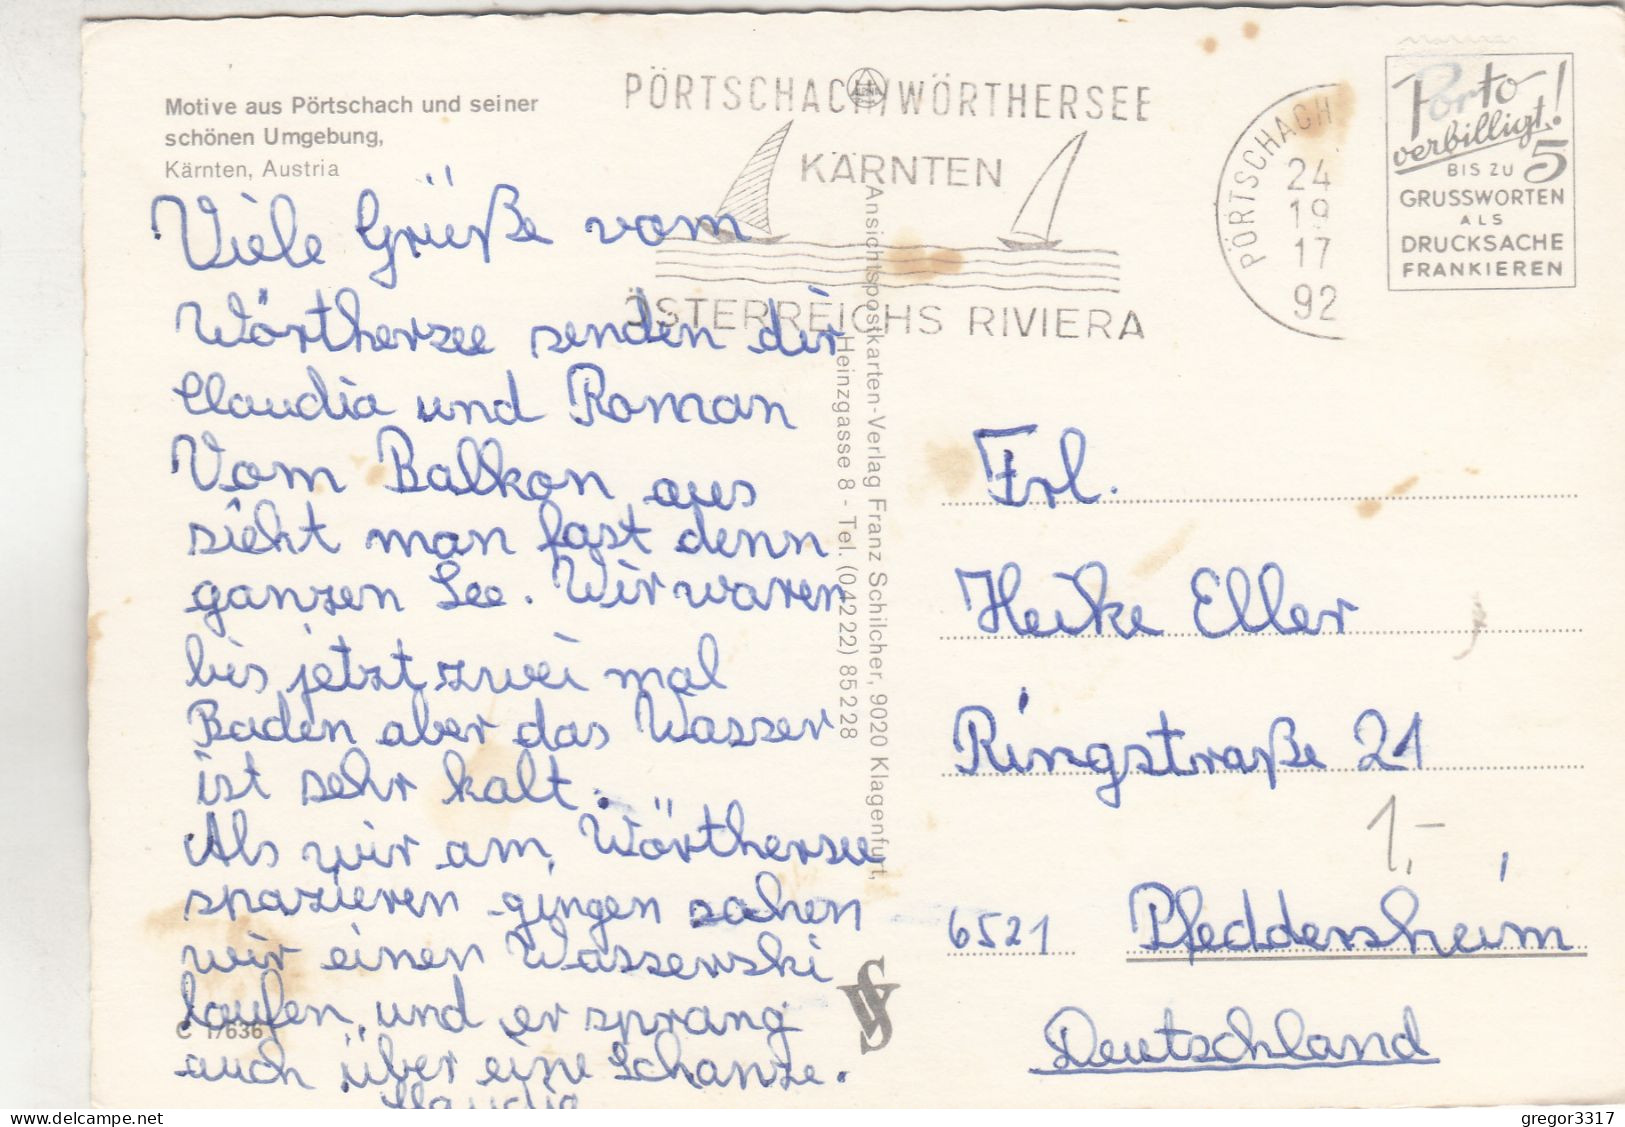 Motive aus Pörtschach und seiner
schönen Umgebung,
Kärnten, Austria
PÖRTSCHACH/WÖRTHERSEE
KÄRNTEN
ÖSTERREICHS RIVIERA
PÖRTSCHACH
24
19
17
92
Porto
verbilligt!
BIS ZU 5
GRUSSWORTEN
ALS
DRUCKSACHE
FRANKIEREN
Viele Grüße vom
Wörthersee senden dir
Claudia und Roman
Vom Balkon aus
sieht man fast denn
ganzen See. Wir waren
bis jetzt zwei mal
Baden aber das Wasser
ist sehr kalt.
Als wir am Wörthersee
spazieren gingen sahen
wir einen Wasserski
laufen, und er sprang
auch über eine Schanze.
Claudia
C 17636
Ansichtspostkarten-Verlag Franz Schilcher, 9020 Klagenfurt,
Heinzgasse 8 - Tel. (04222) 85228
Frl.
Heike Eller
Ringstraße 21
1,-
6521 Pfeddersheim
Deutschland
gregor3317